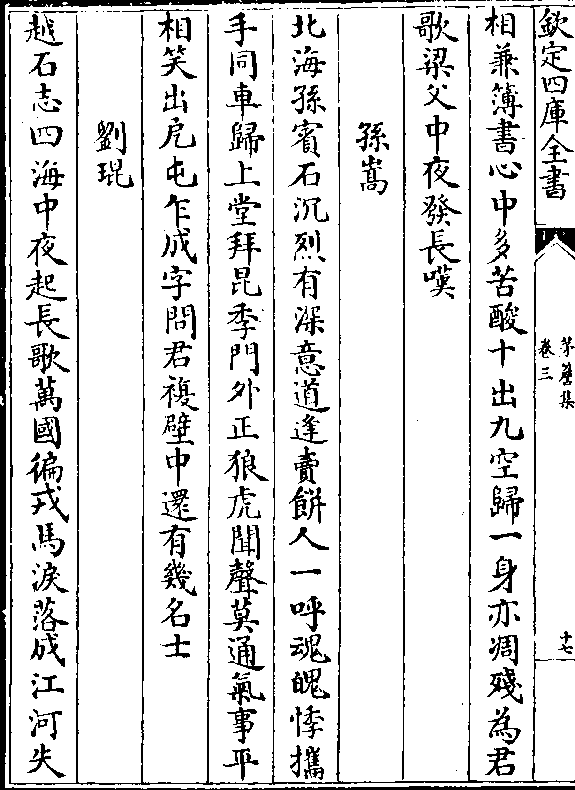 欽定四庫全書
茅簷集
卷三
十七
相兼簿書心中多苦酸十出九空歸一身亦凋殘為君
歌梁父中夜發長嘆
孫嵩
北海孫賓石沉烈有深意道逢賣餅人一呼魂魄悸攜
手同車歸上堂拜昆季門外正狼虎聞聲莫通氣事平
相笑出戹屯乍成字問君複壁中還有幾名士
劉琨
越石志四海中夜起長歌萬國徧戎馬淚落成江河失